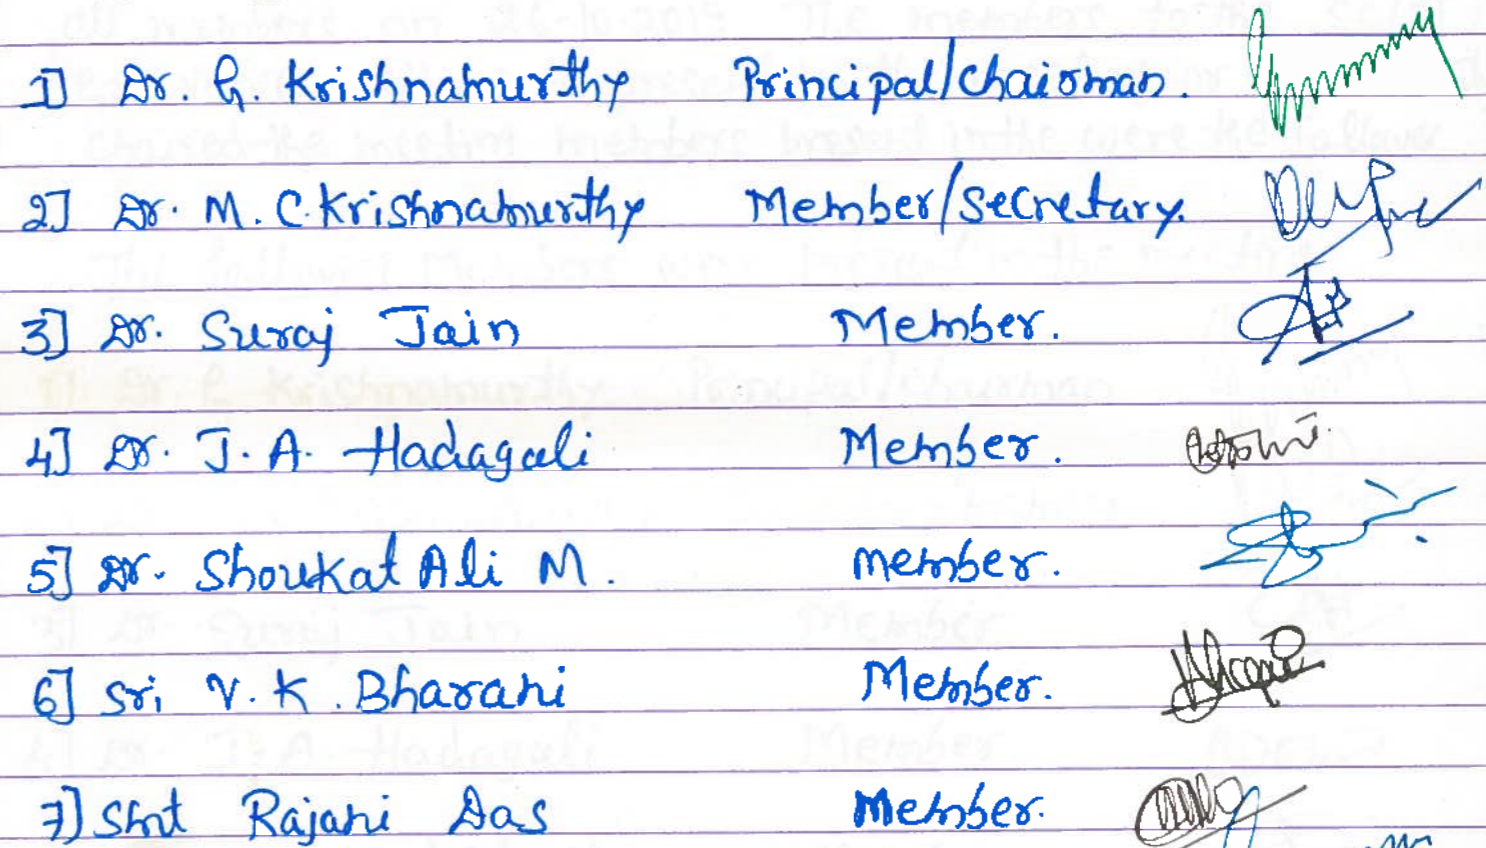 1] Dr. G. Krishnamurthy Principal/Chairman.
2] Dr. M. C. Krishnamurthy Member/Secretary.
3] Dr. Suraj Jain Member.
4] Dr. J. A. Hadagali Member.
5] Dr. Shoukat Ali M. Member.
6] Sri V. K. Bharani Member.
7] Smt Rajani Das Member.